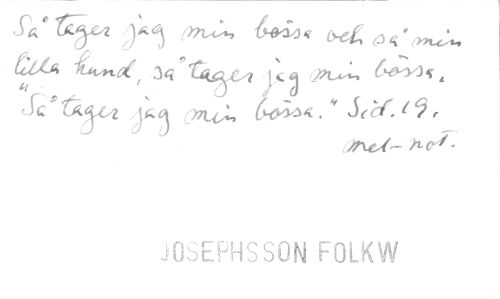 Så tager jag min bössa och så min
lilla hund, så tager jag min bössa.
"Så tager jag min bössa." Sid. 19.
mel-not.
JOSEPHSSON FOLKW